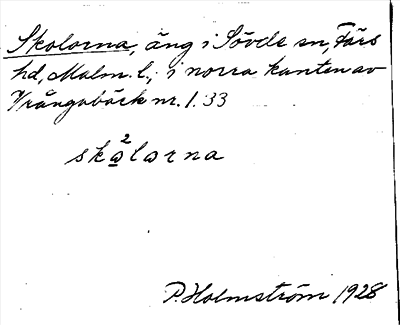 Skolorna, äng i Sövde sn, Färs
hd, Malm. l., i norra kanten av
Vrångabäck nr. 1. 33
skω̲²lωrna
P. Holmström 1928